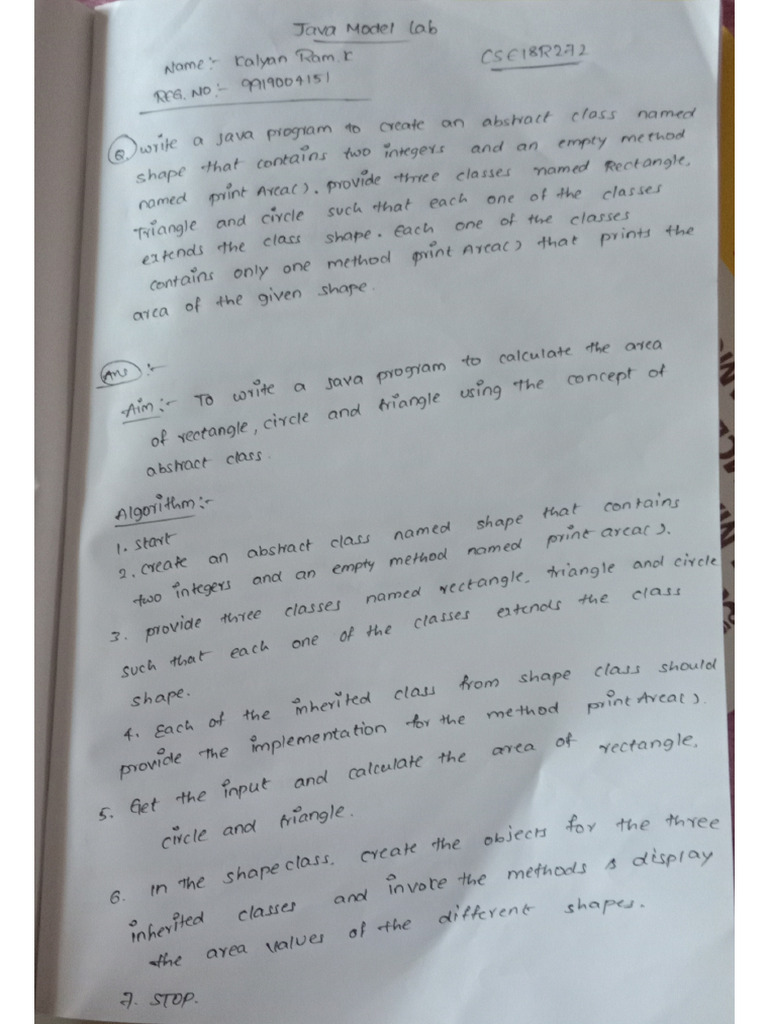 Java Model Lab
Name:- Kalyan Ram.K
CSE18R272
REG. NO:- 9919004151
Q) write a java program to create an abstract class named
shape that contains two integers and an empty method
named print Area(). provide three classes named Rectangle,
Triangle and circle such that each one of the classes
extends the class shape. Each one of the classes
contains only one method print Area() that prints the
area of the given shape.
Ans :-
Aim:- To write a java program to calculate the area
of rectangle, circle and triangle using the concept of
abstract class.
Algorithm:-
1. start
2. create an abstract class named shape that contains
two integers and an empty method named print area().
3. provide three classes named rectangle, triangle and circle
such that each one of the classes extends the class
shape.
4. Each of the inherited class from shape class should
provide the implementation for the method print Area().
5. Get the input and calculate the area of rectangle,
circle and triangle.
6. In the shape class, create the objects for the three
inherited classes and invoke the methods & display
the area values of the different shapes.
7. STOP.